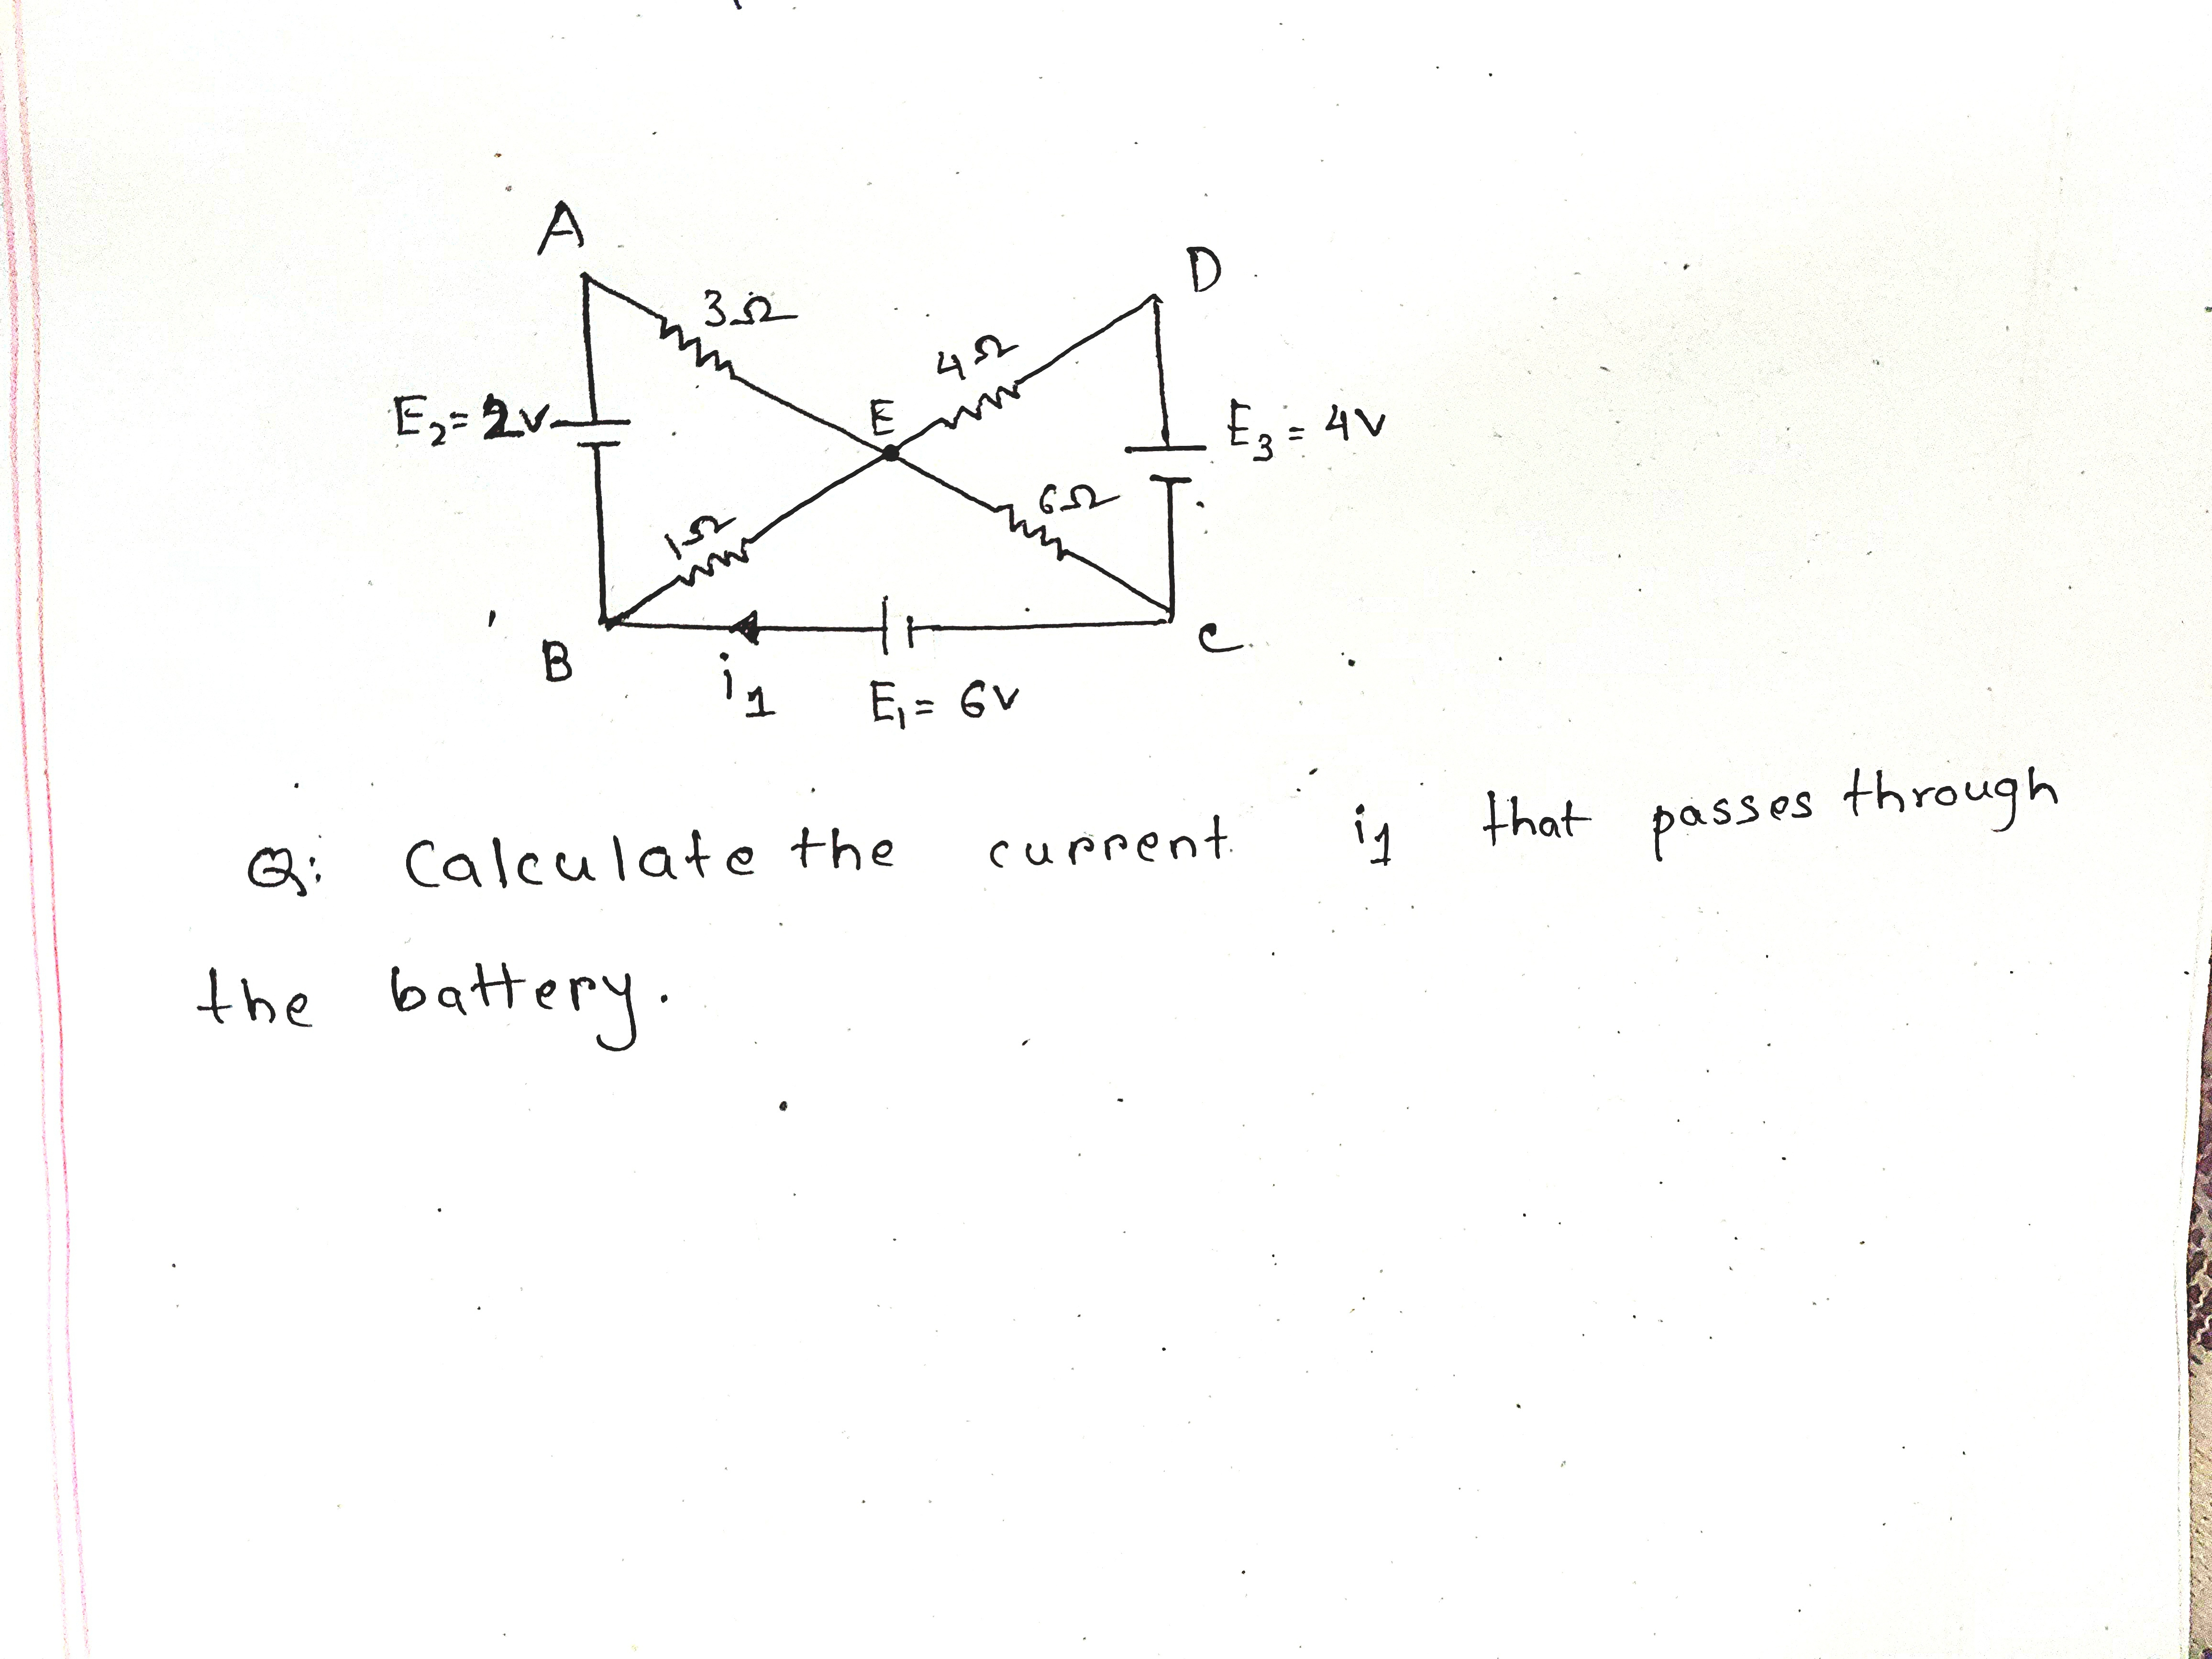 A
D
3Ω
4Ω
E₂= 2V
E
E₃ = 4V
6Ω
1Ω
B
i₁
C
E₁= 6V
Q: Calculate the current i₁ that passes through
the battery.